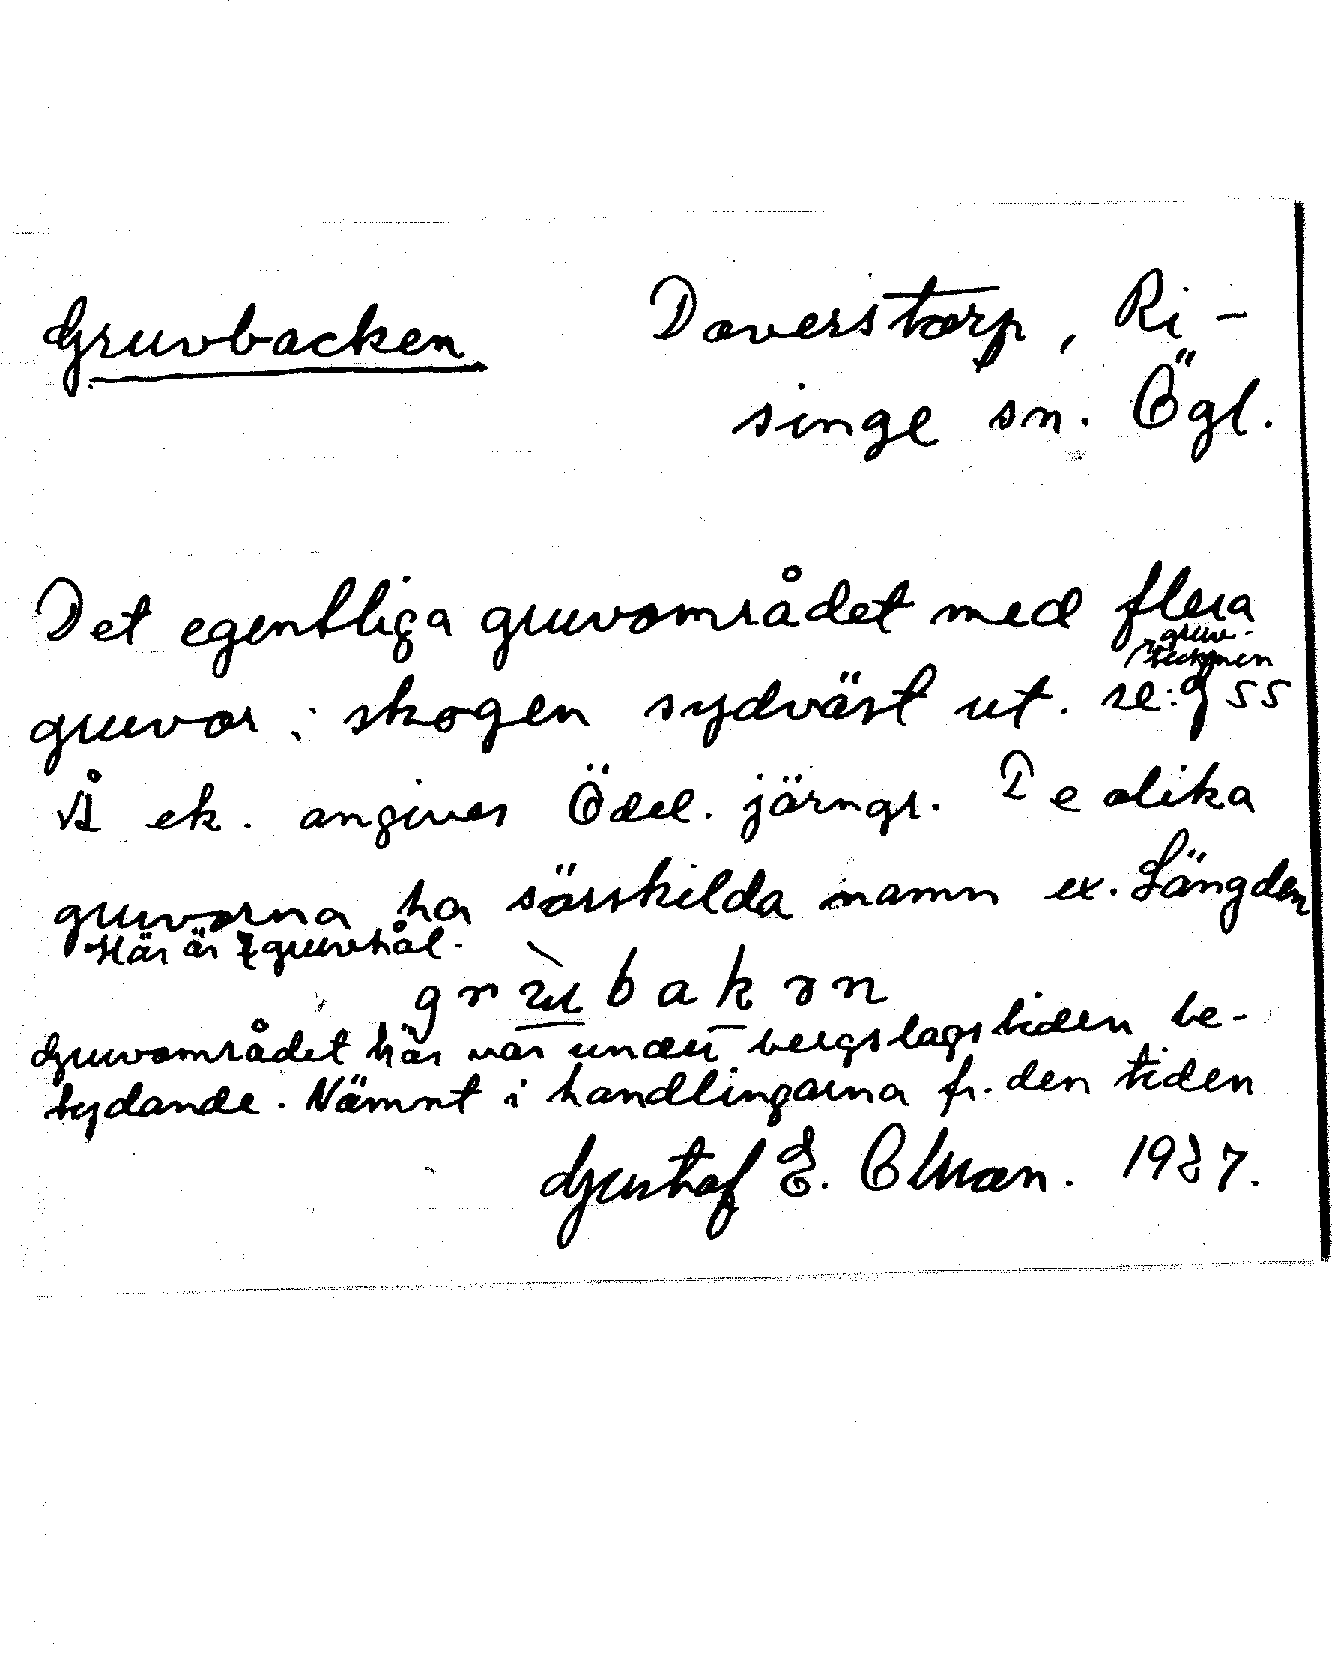 Gruvbacken Doverstorp, Ri-
singe sn. Ögl.
Det egentliga gruvområdet med flera
gruv-
tecknen
gruvor i skogen sydväst ut. se: 55
Å ek. angives Ödel. järngr. De olika
gruvorna ha särskilda namn ex. Längden
Här är 7 gruvhål.
Gruvområdet här var under bergslagstiden be-
tydande. Nämnt i handlingarna fr. den tiden
Gustaf E. Olman. 1937.